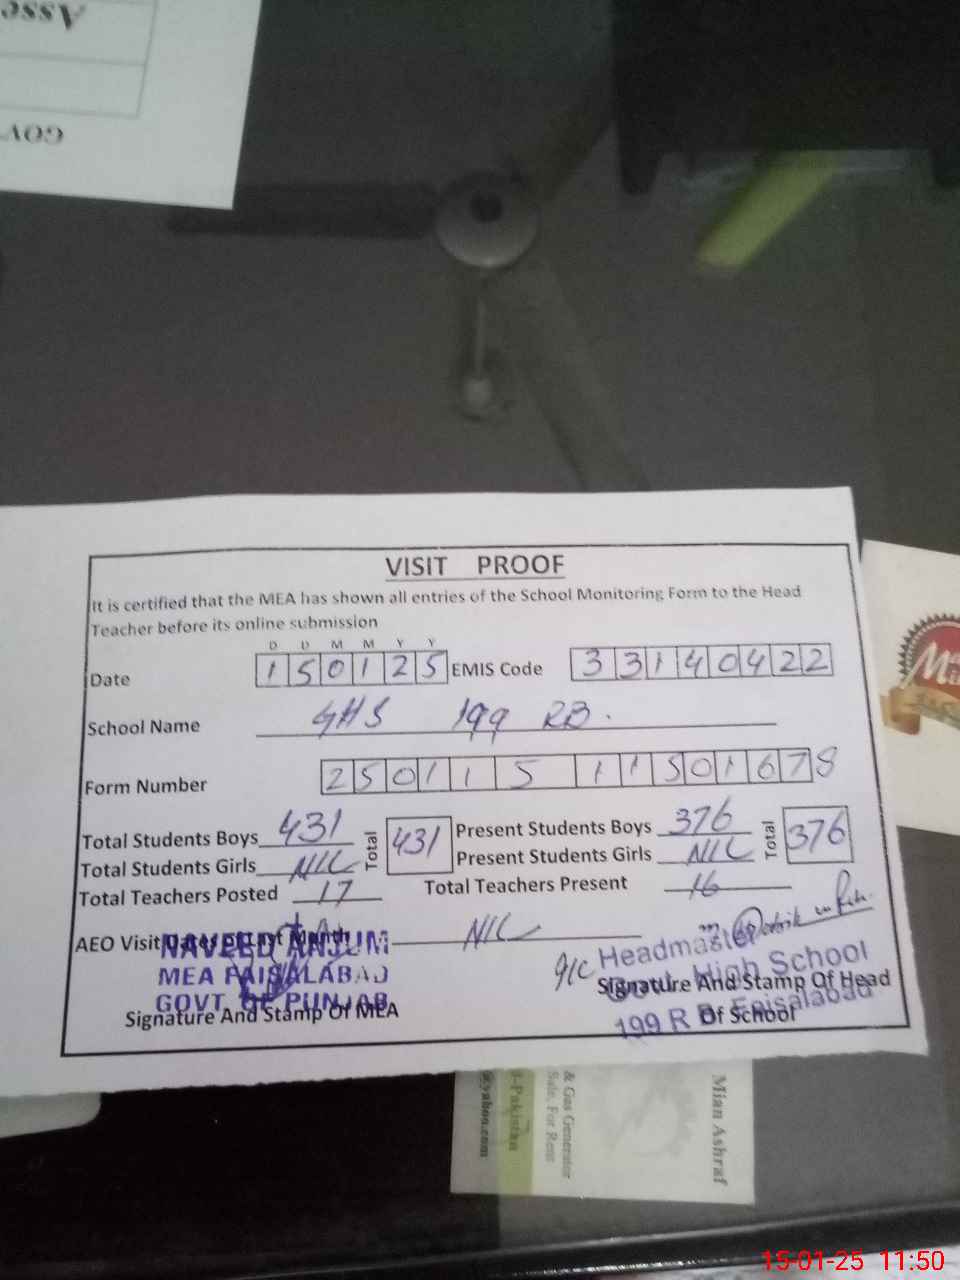 Asse
GOV
VISIT PROOF
It is certified that the MEA has shown all entries of the School Monitoring Form to the Head
Teacher before its online submission
D D M M Y Y
Date 150125 EMIS Code 33140422
School Name GHS 199 RB.
Form Number 250115 11501678
Total Students Boys 431 Total 431 Present Students Boys 376 Total 376
Total Students Girls NIL Present Students Girls NIL
Total Teachers Posted 17 Total Teachers Present 16
AEO Visit Dates of Last Month NIL
NAVEED ANJUM
MEA FAISALABAD
GOVT. OF PUNJAB
Signature And Stamp Of MEA
I/C Headmaster
Govt. High School
199 R B Faisalabad
Signature And Stamp Of Head
Of School
Mian Ashraf
& Gas Generator
Sale, For Rent
-Pakistan
yahoo.com
15-01-25 11:50